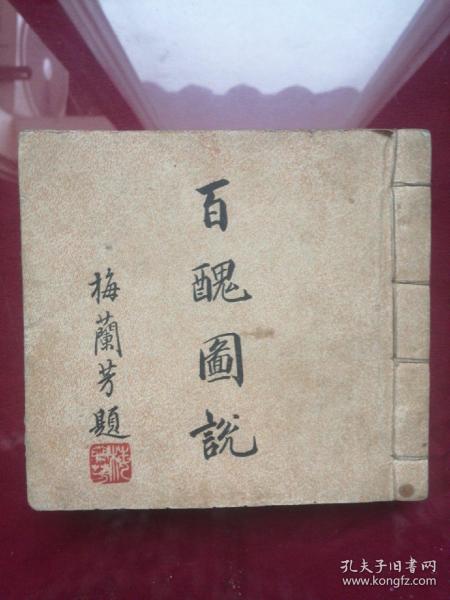 百醜圖說
梅蘭芳題
孔夫子旧书网
www.kongfz.com